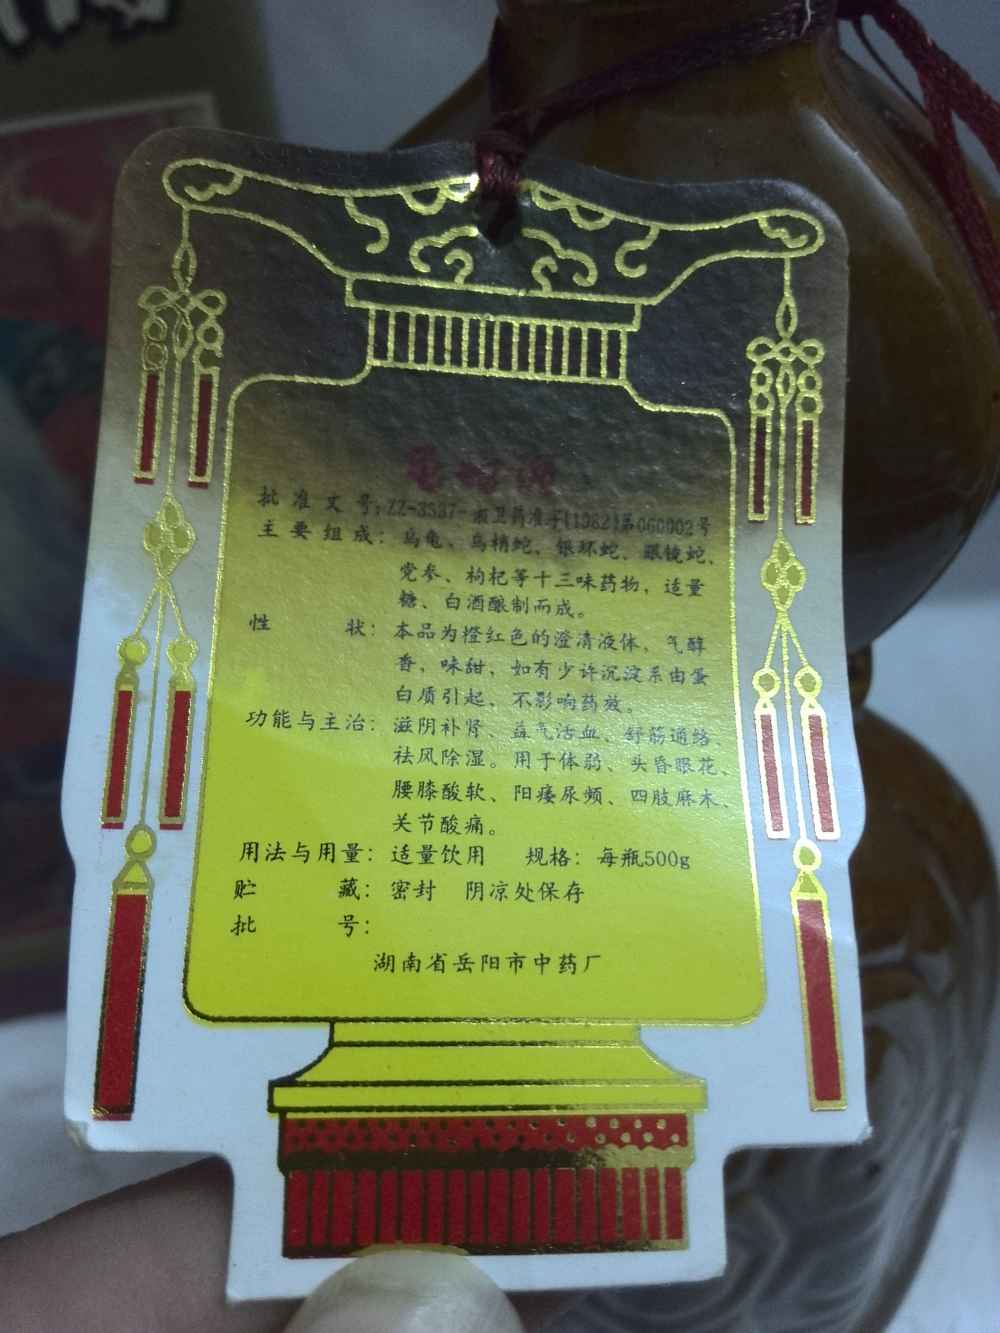 龟蛇酒
批准文号：ZZ-3537-湘卫药准字(1982)第060002号
主要组成：乌龟、乌梢蛇、银环蛇、眼镜蛇、
党参、枸杞等十三味药物，适量
糖、白酒酿制而成。
性状：本品为橙红色的澄清液体，气醇
香，味甜，如有少许沉淀系由蛋
白质引起，不影响药效。
功能与主治：滋阴补肾、益气活血、舒筋通络、
祛风除湿。用于体弱、头昏眼花、
腰膝酸软、阳痿尿频、四肢麻木、
关节酸痛。
用法与用量：适量饮用 规格：每瓶500g
贮藏：密封 阴凉处保存
批号：
湖南省岳阳市中药厂